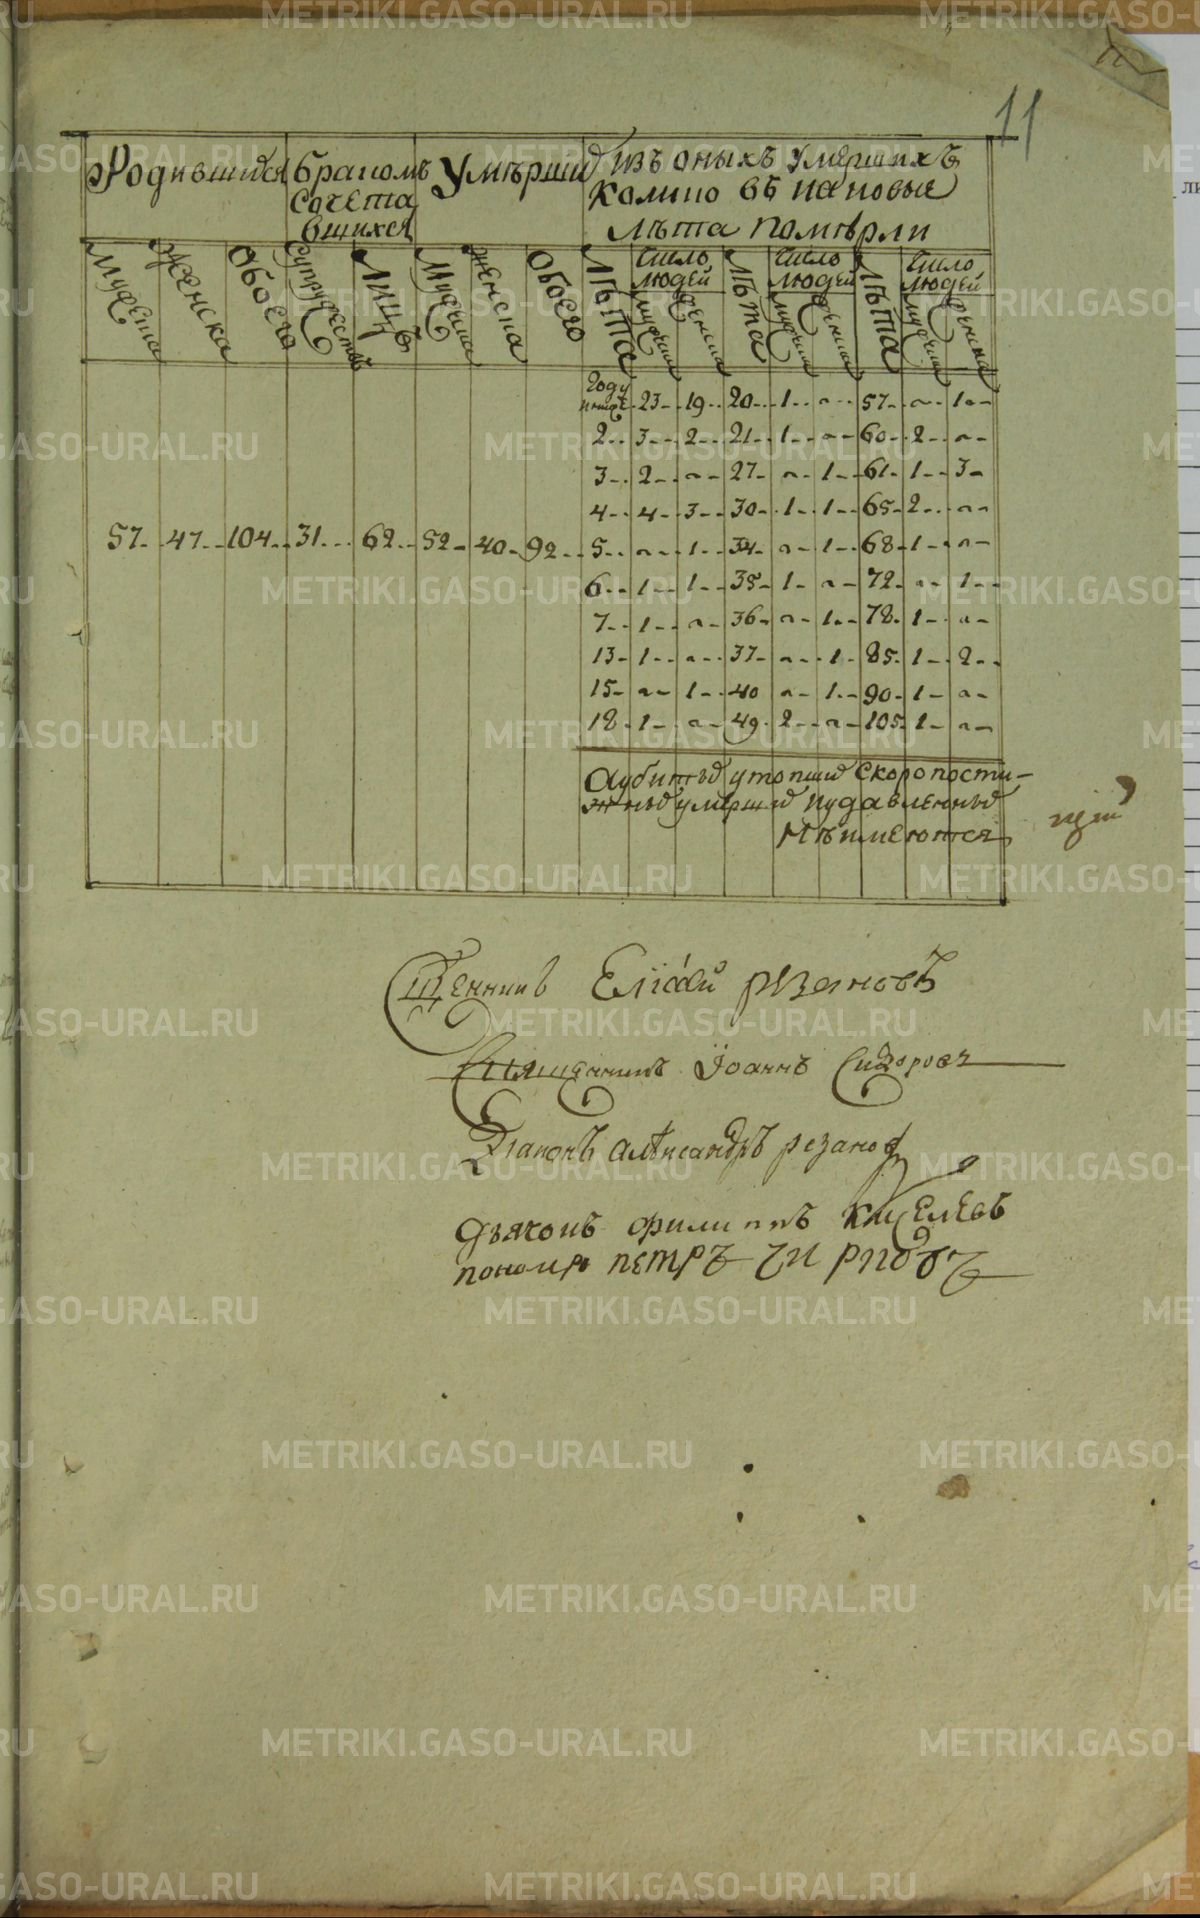 11
Родившихся бракомъ Умершихъ изъ оныхъ умершихъ
сочета колико въ каковые
вшихся лѣта померли
мужеска женска обоего супружествъ лицъ мужеска женска обоего лѣта число людей лѣта число людей лѣта число людей
мужеска женска мужеска женска мужеска женска
году
23 19 20 1 ~ 57 ~ 1
2 3 2 21 1 ~ 60 2 ~
3 2 ~ 27 ~ 1 61 1 3
4 4 3 30 1 1 65 2 ~
57 47 104 31 62 52 40 92 5 ~ 1 34 ~ 1 68 1 ~
6 1 1 35 1 ~ 72 ~ 1
7 1 ~ 36 ~ 1 78 1 ~
13 1 ~ 37 ~ 1 85 1 2
15 ~ 1 40 ~ 1 90 1 ~
18 1 ~ 49 2 ~ 105 1 ~
А убитыхъ утопшихъ скоропости-
жныхъ умершихъ и удавленныхъ
не имеются
Елісей резановъ
Священникъ Іоаннъ Сидоровъ
Діаконъ алеѯандръ резановъ
дьячокъ филиппъ киселевъ
пономарь петръ
METRIKI.GASO-URAL.RU